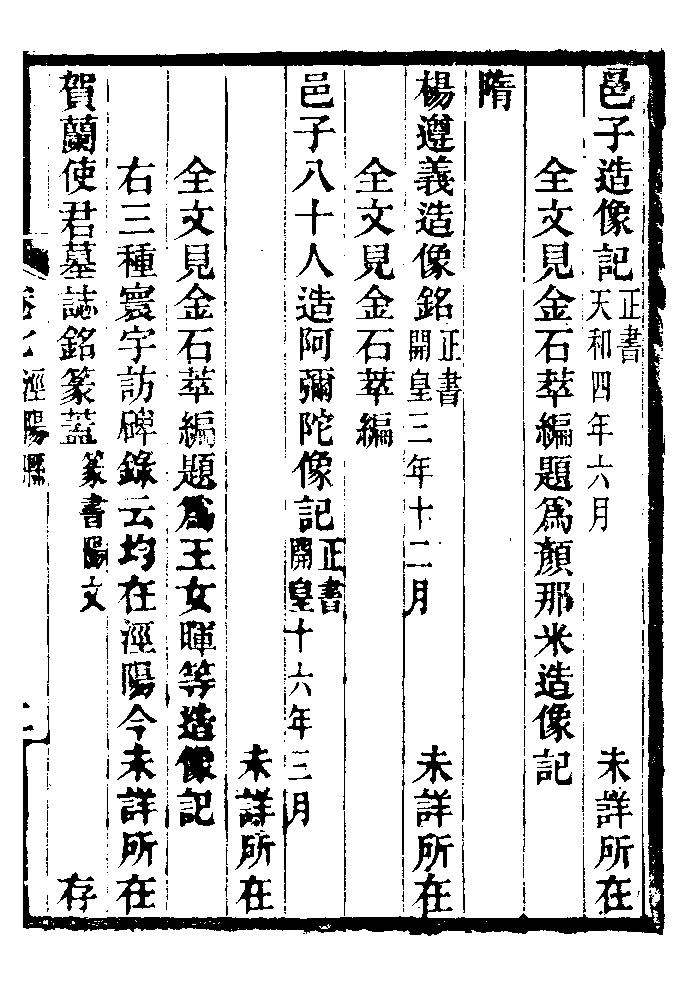 邑子造像記 正書 天和四年六月 未詳所在
全文見金石萃編題爲顏那米造像記
隋
楊遵義造像銘 正書 開皇三年十二月 未詳所在
全文見金石萃編
邑子八十人造阿彌陀像記 正書 開皇十六年三月
未詳所在
全文見金石萃編題爲王女暉等造像記
右三種寰宇訪碑錄云均在涇陽今未詳所在
賀蘭使君墓誌銘篆蓋 篆書陽文 存
卷七 涇陽縣